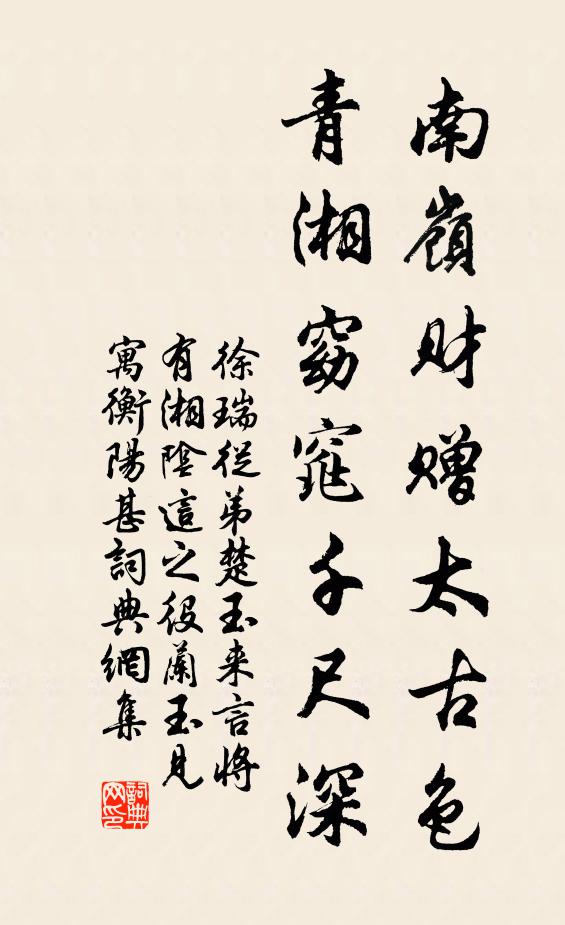 南嶺财赠太古色
青湘窈窕千尺深
徐瑞從弟楚玉来言將
有湘陰這之役蘭玉見
寓衡陽甚詞典網集
詞典
网印